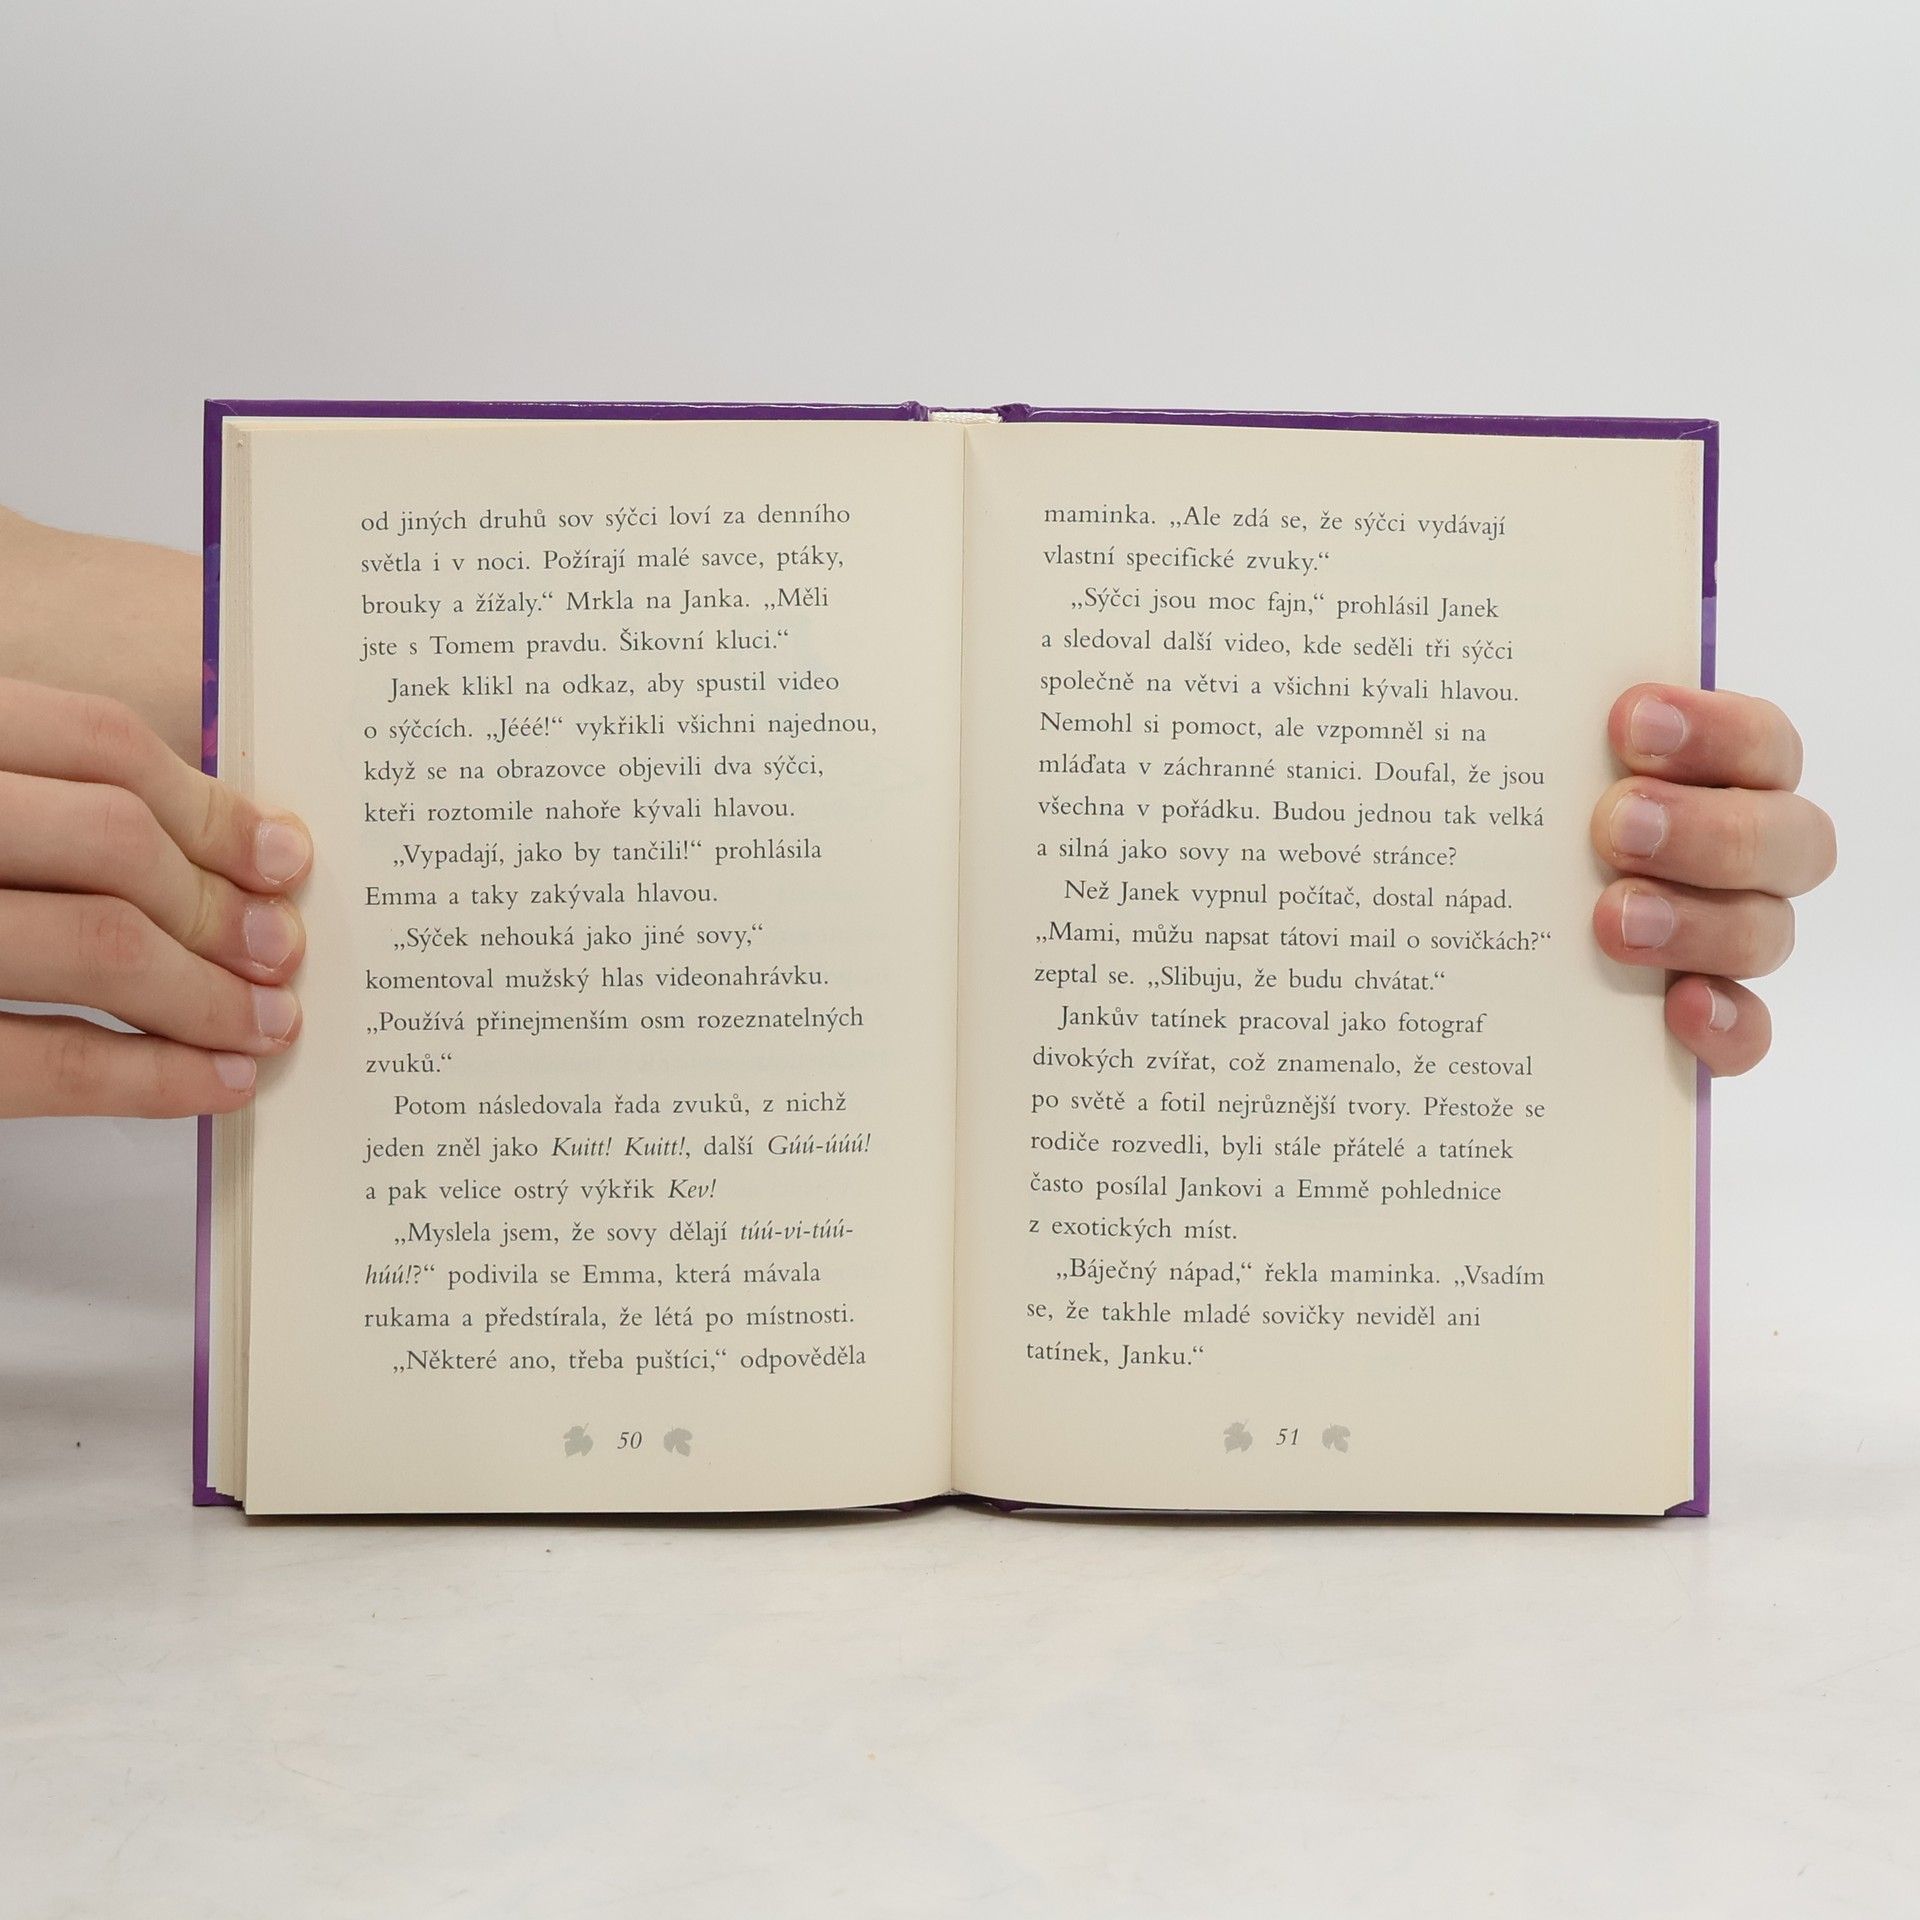 od jiných druhů sov sýčci loví za denního
světla i v noci. Požírají malé savce, ptáky,
brouky a žížaly.“ Mrkla na Janka. „Měli
jste s Tomem pravdu. Šikovní kluci.“
Janek klikl na odkaz, aby spustil video
o sýčcích. „Jééé!“ vykřikli všichni najednou,
když se na obrazovce objevili dva sýčci,
kteři roztomile nahoře kývali hlavou.
„Vypadají, jako by tančili!“ prohlásila
Emma a taky zakývala hlavou.
„Sýček nehouká jako jiné sovy,“
komentoval mužský hlas videonahrávku.
„Používá přinejmenším osm rozeznatelných
zvuků.“
Potom následovala řada zvuků, z nichž
jeden zněl jako Kuitt! Kuitt!, další Gúú-úúú!
a pak velice ostrý výkřik Kev!
„Myslela jsem, že sovy dělají túú-vi-túú-
húú!?“ podivila se Emma, která mávala
rukama a předstírala, že létá po místnosti.
„Některé ano, třeba puštíci,“ odpověděla
50
maminka. „Ale zdá se, že sýčci vydávají
vlastní specifické zvuky.“
„Sýčci jsou moc fajn,“ prohlásil Janek
a sledoval další video, kde seděli tři sýčci
společně na větvi a všichni kývali hlavou.
Nemohl si pomoct, ale vzpomněl si na
mláďata v záchranné stanici. Doufal, že jsou
všechna v pořádku. Budou jednou tak velká
a silná jako sovy na webové stránce?
Než Janek vypnul počítač, dostal nápad.
„Mami, můžu napsat tátovi mail o sovičkách?“
zeptal se. „Slibuju, že budu chvátat.“
Jankův tatínek pracoval jako fotograf
divokých zvířat, což znamenalo, že cestoval
po světě a fotil nejrůznější tvory. Přestože se
rodiče rozvedli, byli stále přátelé a tatínek
často posílal Jankovi a Emmě pohlednice
z exotických míst.
„Báječný nápad,“ řekla maminka. „Vsadím
se, že takhle mladé sovičky neviděl ani
tatínek, Janku.“
51